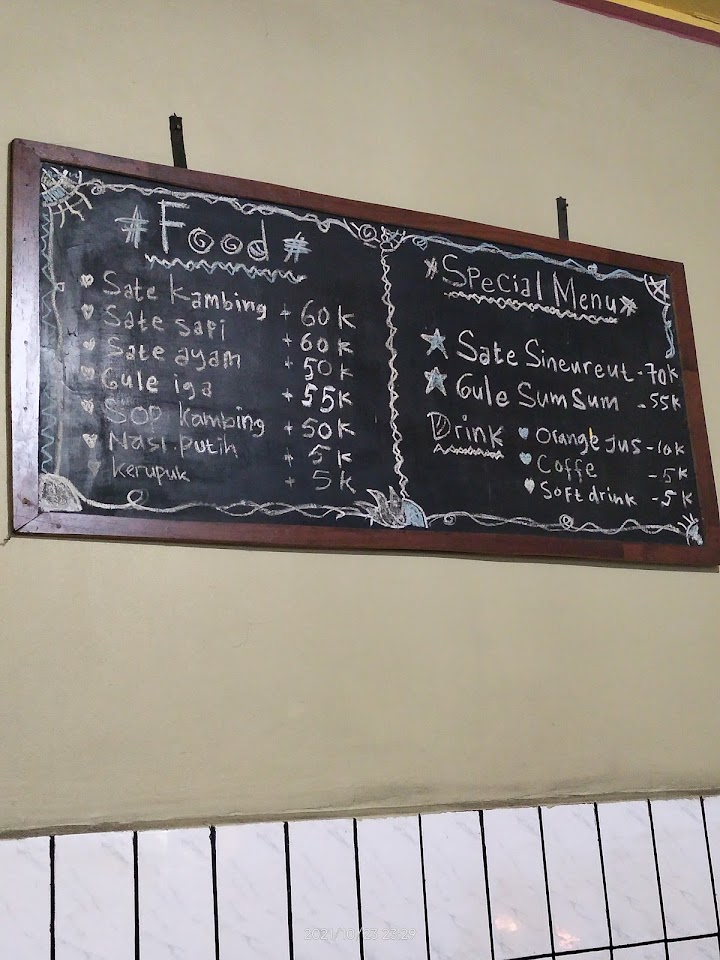 #Food#
Sate Kambing - 60K
Sate sapi - 60K
Sate ayam - 50K
Gule iga - 55K
SOP kambing - 50K
Nasi putih - 5K
Kerupuk - 5K
*Special Menu*
Sate Sineureut - 70K
Gule SumSum - 55K
Drink
Orange Jus - 10K
Coffe - 5K
Soft drink - 5K
2021/10/23 23:29